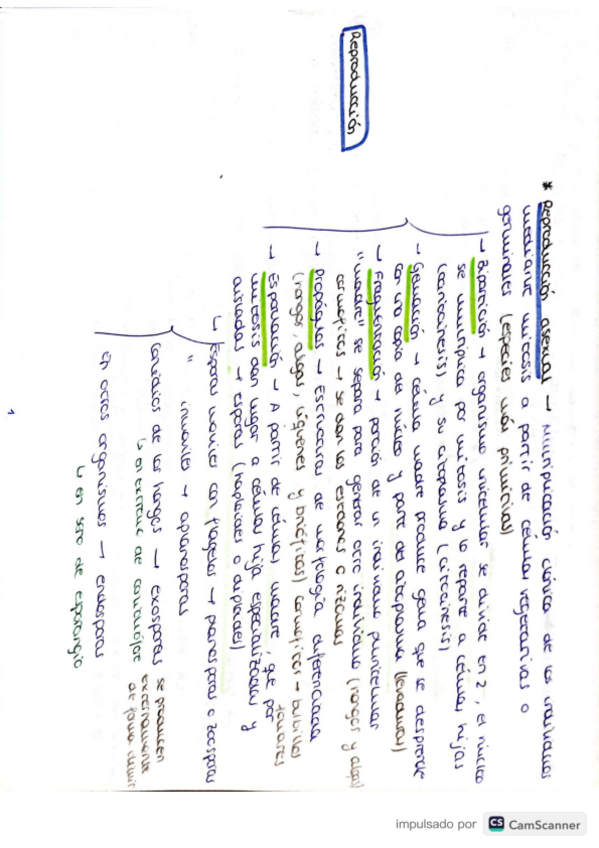 Reproducción
* Reproducción asexual → Multiplicación clónica de los individuos
mediante mitosis a partir de células vegetativas o
germinales (especies más primitivas)
→ Bipartición → organismo unicelular se divide en 2, el núcleo
se multiplica por mitosis y lo reparte a células hijas
(cariocinesis) y su citoplasma (citocinesis)
→ Gemación → célula madre produce gema que se desprende
con una copia del núcleo y parte del citoplasma (levaduras)
→ Fragmentación → porción de un individuo pluricelular
"madre" se separa para generar otro individuo (hongos y algas)
cormofitos → se dan los estolones o rizomas
→ Propágulos → Estructuras de morfología diferenciada
(hongos, algas, líquenes y briófitos) cormofitos → bulbillos
foliares
→ Esporulación → A partir de células madre, que por
mitosis dan lugar a células hija especializadas y
aisladas → esporas (haploides o diploides)
↳ Esporas móviles con flagelos → planosporas o zoosporas
" inmóviles → aplanosporas
Conidios de los hongos → exosporas se producen
externamente
↳ en extremo de conidióforo
En otros organismos → endosporas
↳ en seno de esporangio
1
impulsado por CS CamScanner